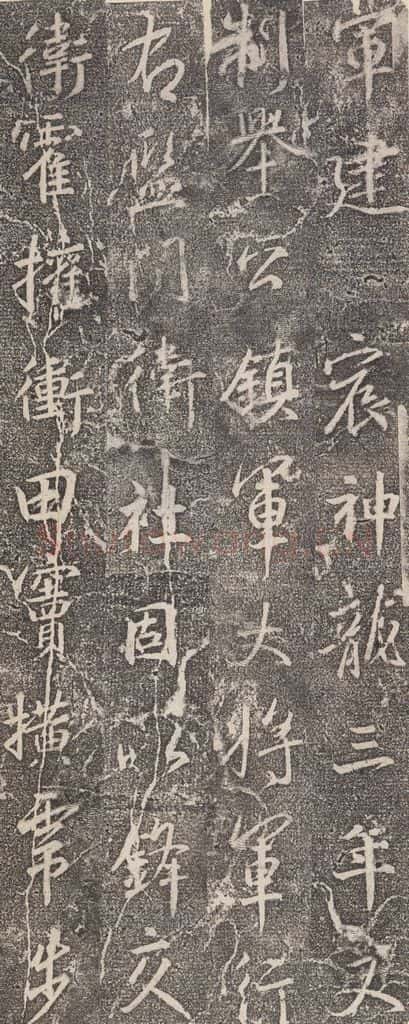 軍建宸神龍三年又
制舉公鎮軍大將軍行
右監門衛社固以鋒
衛霍擁衝田竇橫常